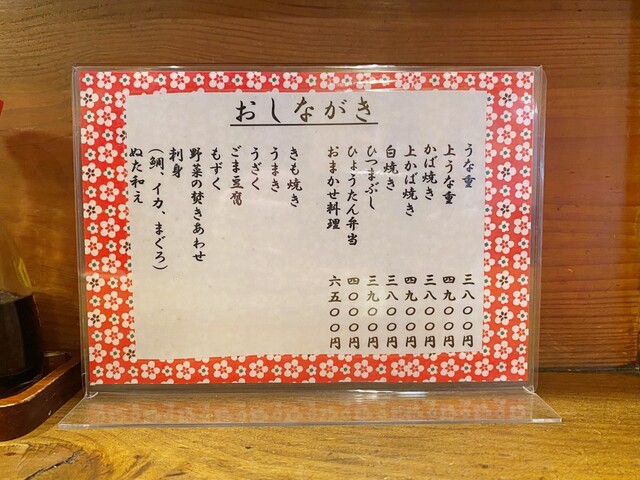 おしながき
うな重 三八〇〇円
上うな重 四九〇〇円
かば焼き 三八〇〇円
上かば焼き 四九〇〇円
白焼き 三八〇〇円
ひつまぶし 三九〇〇円
ひょうたん弁当 四〇〇〇円
おまかせ料理 六五〇〇円
きも焼き
うまき
うざく
ごま豆腐
もずく
野菜の焚きあわせ
刺身
(鯛、イカ、まぐろ)
ぬた和え